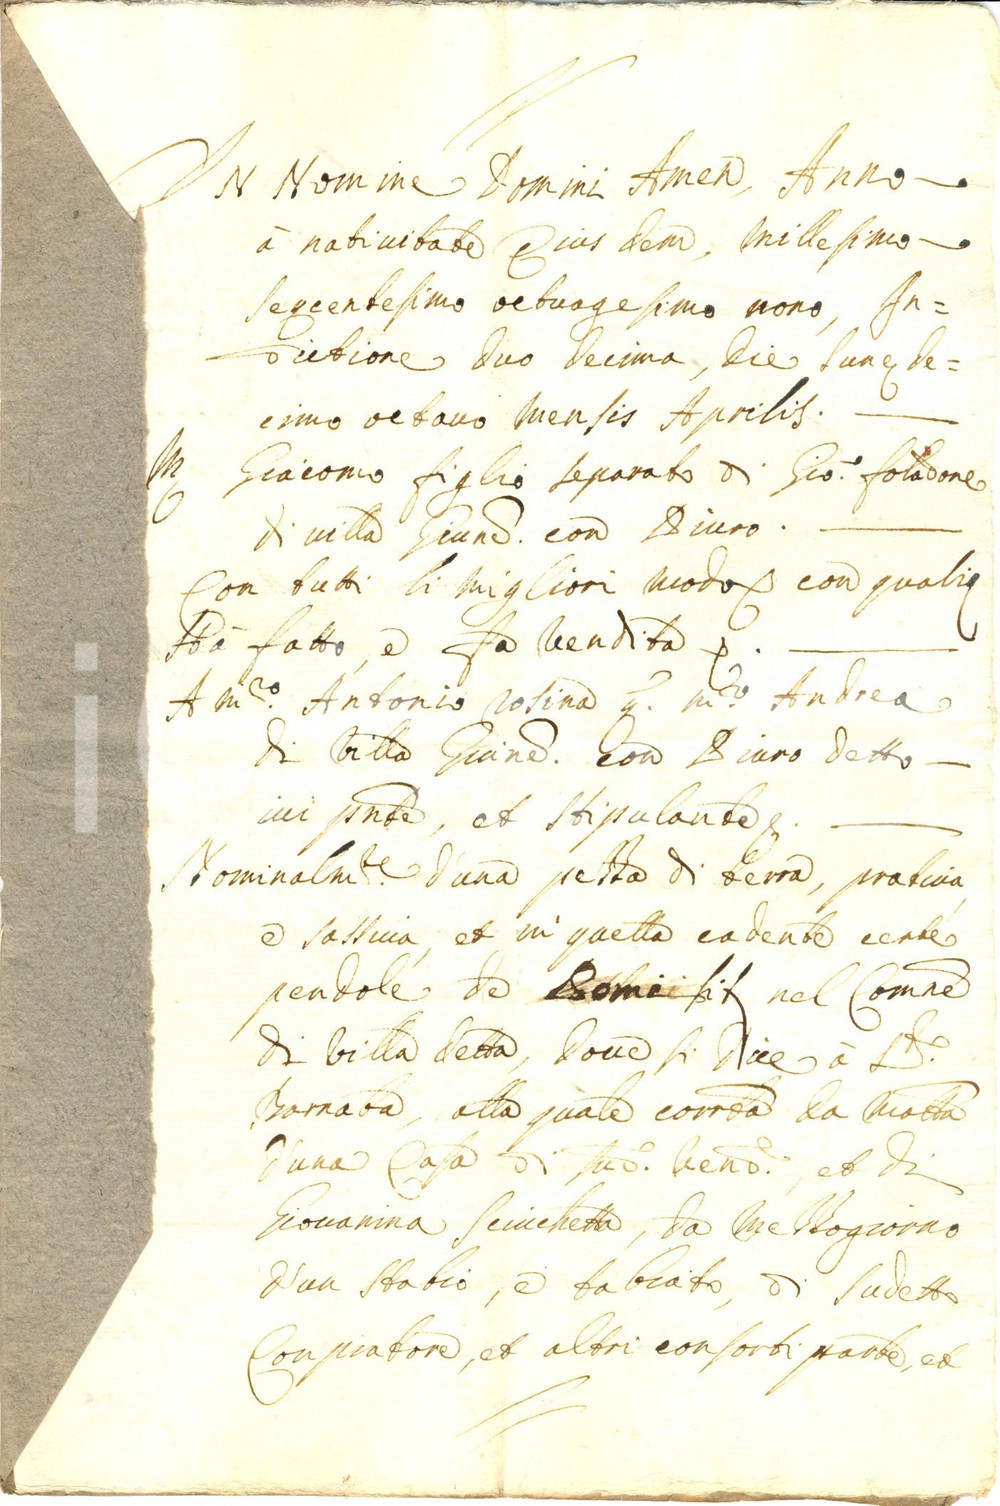 IN Nomine Domini Amen, Anno
à nativitate Eius dem, Millesimo
sexcentesimo octuagesimo nono, In=
dictione duo decima, die lune de=
cimo octavo Mensis Aprilis.
M Giacomo figlio separato di Gio.
di villa con Piuro.
Con tutti li Migliori modi con quali
Hà fatto, e fa vendita
A m.ro Antonio rosina q. m.ro Andrea
di Villa con Piuro detto
ivi pnte, et stipulante.
Nominalm.te d'una pezza di terra, prativa,
e sassiva, et in quella cadente certe
pendole de sit nel Comne
di villa detta, dove si dice à S.to
Barnaba, alla quale correda da Matta
d'una Casa di sud.o vend.e, et di
Giovanina Scinchetta, da Mezzogiorno
d'un stabio, e tabiato, di sudetto
Conpratore, et altri consorti parte, et